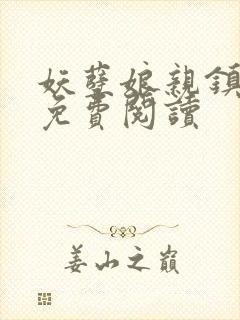 妖孽娘親鎮
免費閱讀
姜山之巔